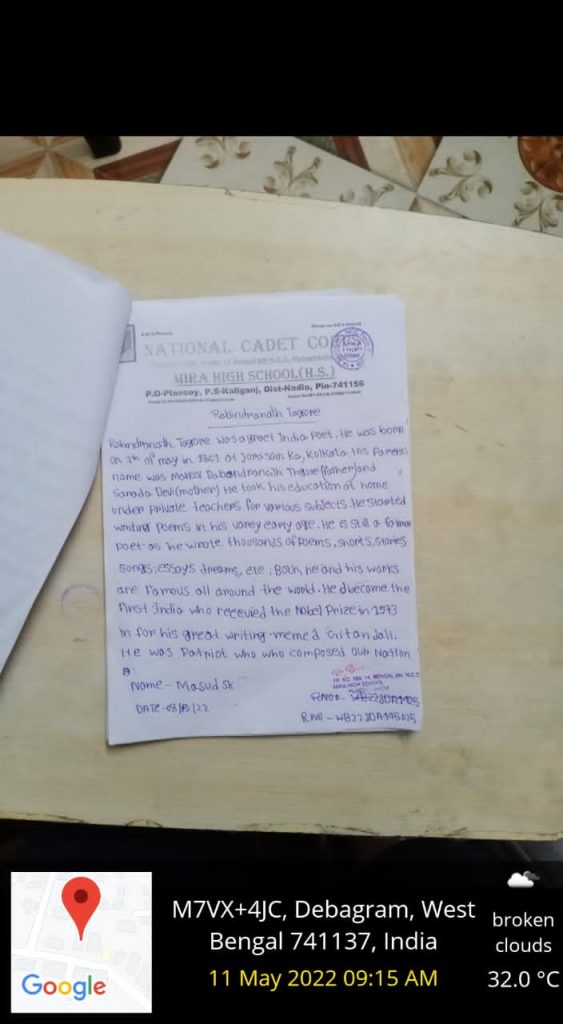 NATIONAL CADET CO
MIRA HIGH SCHOOL(H.S.)
P.O-Plassey, P.S-Kaliganj, Dist-Nadia, Pin-741156
Rabindranath Tagore
Rabindranath Tagore was a graet India Poet. He was born
on 7th of may in 1861 at Jorasain Ka, Kolkata His Parens
name was Dabendranath (father) and
Sarada Devi(mother) He took his education at home
under Private teachers for various subjects. He started
writing Poems in his varey early age. He is still a
Poet as he wrote thoosands of Poems, shorts, stories
songs, essays dreams, ete, Both, he and his works
are Famous all around the world. He dbecame the
First India who recevied the Nobel Prize in 1973
in for his great writing memed Gitandali.
He was Patriot who who composed our Nation
Name - Masud Sk
DATE -08/ /22
MIRA HIGH SCHOOL
R.NO - WB22JDA145025
Google
M7VX+4JC, Debagram, West
Bengal 741137, India
11 May 2022 09:15 AM
broken
clouds
32.0 °C